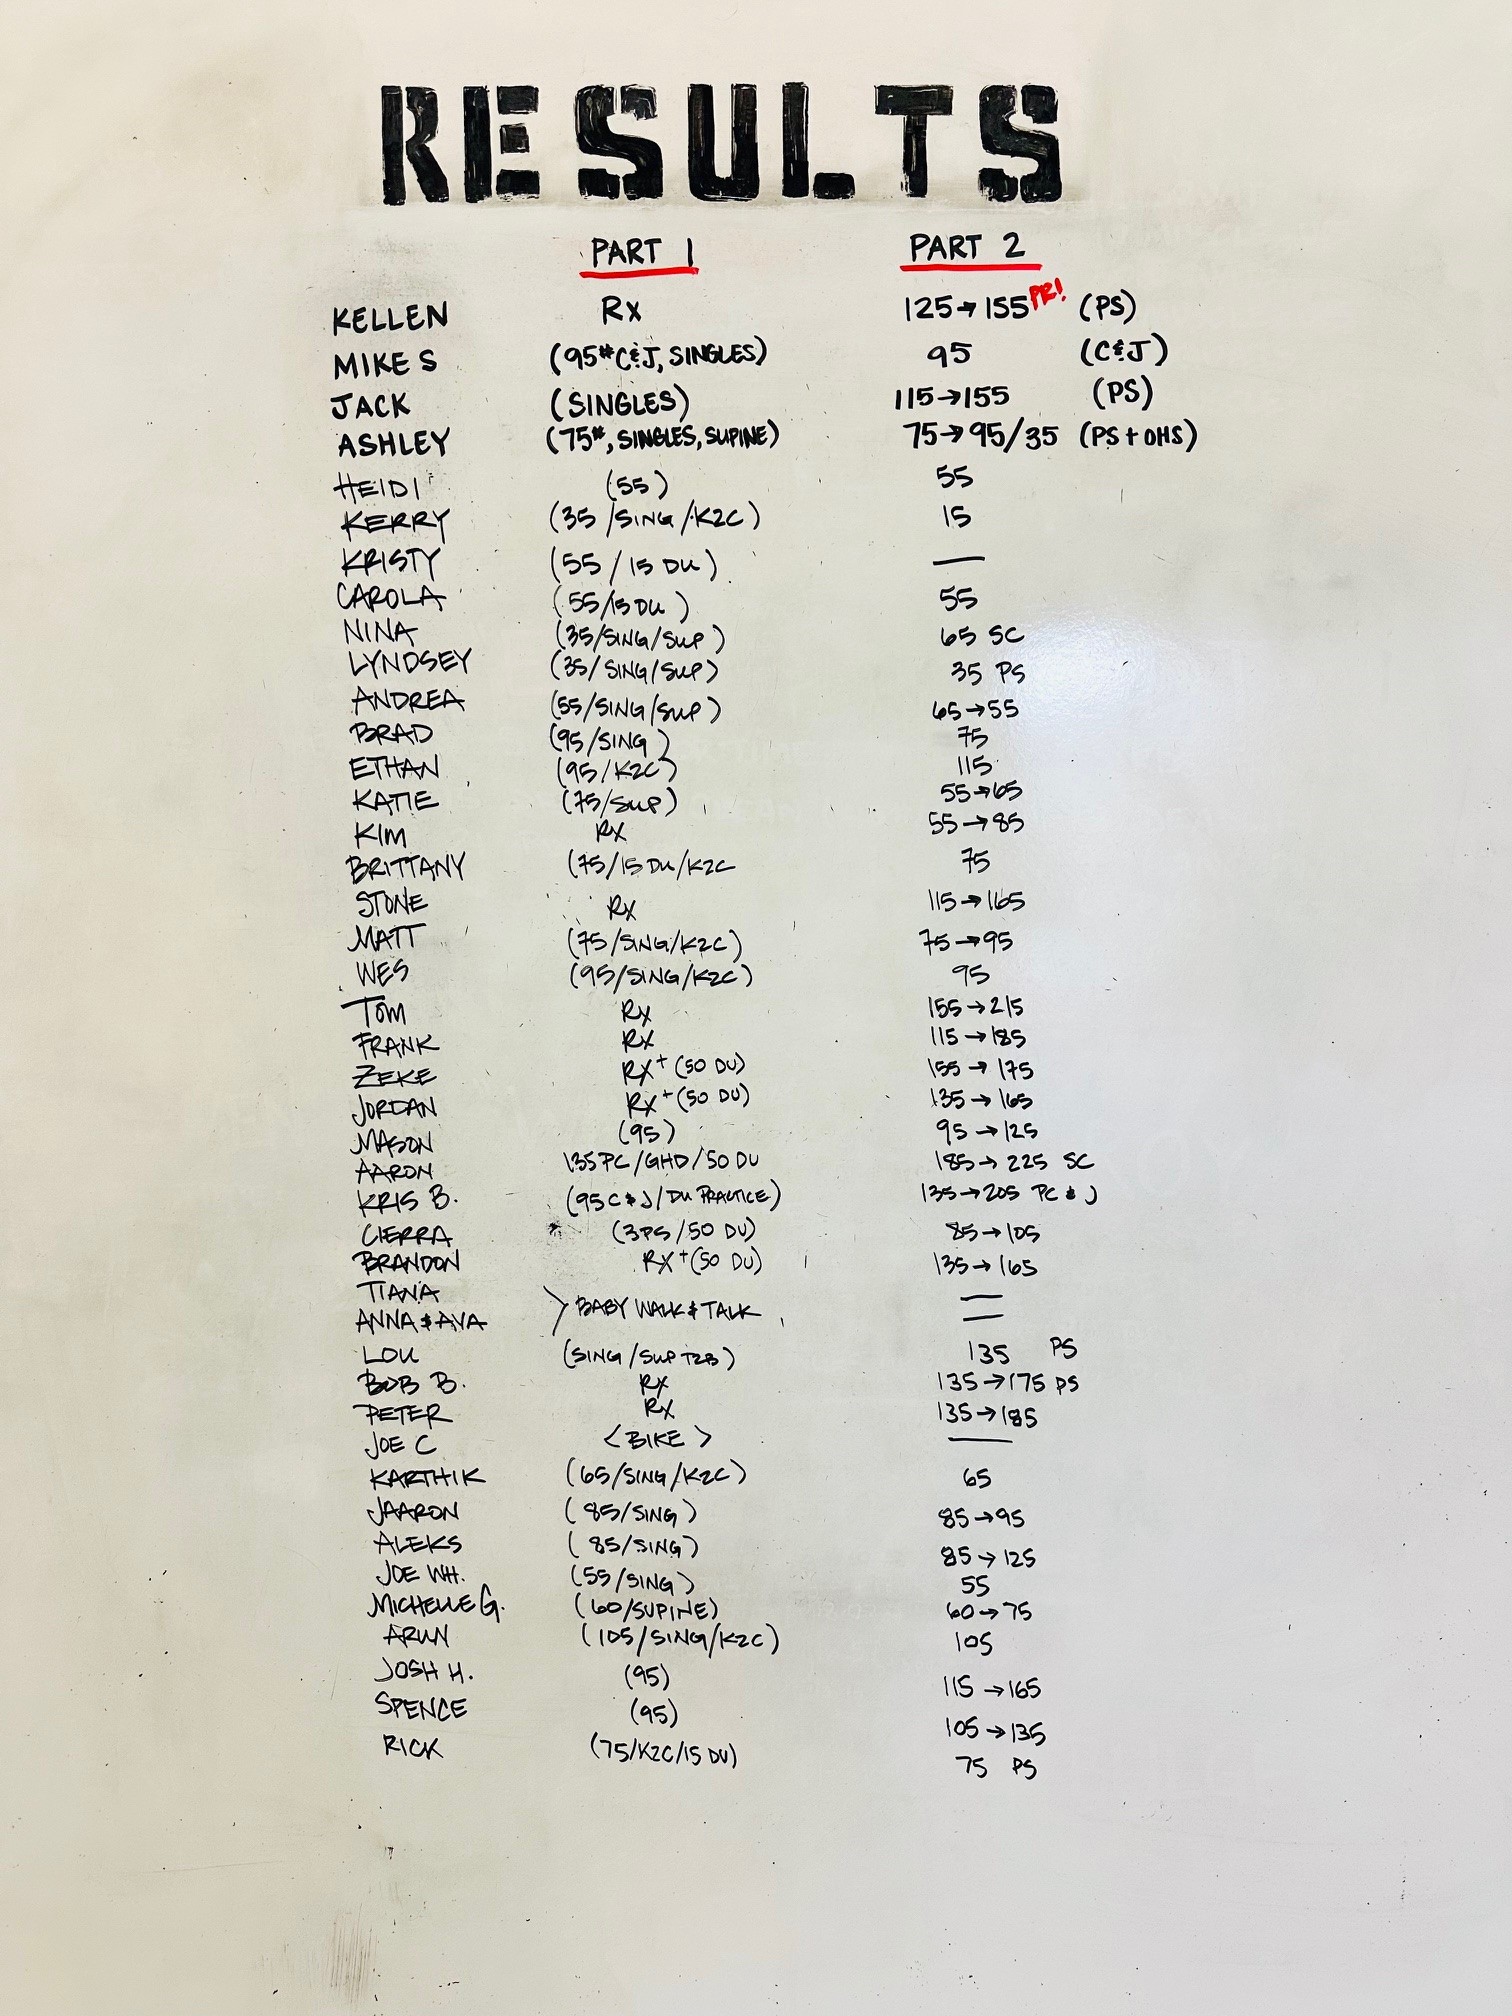 RESULTS
PART 1 PART 2
KELLEN Rx 125→155 PR! (PS)
MIKE S (95# C&J, SINGLES) 95 (C&J)
JACK (SINGLES) 115→155 (PS)
ASHLEY (75#, SINGLES, SUPINE) 75→95/35 (PS + OHS)
HEIDI (55) 55
KERRY (35/SING/K2C) 15
KRISTY (55/15 DU) —
CAROLA (55/15 DU) 55
NINA (35/SING/SUP) 65 SC
LYNDSEY (35/SING/SUP) 35 PS
ANDREA (55/SING/SUP) 65→55
BRAD (95/SING) 75
ETHAN (95/K2C) 115
KATIE (75/SUP) 55→65
KIM RX 55→85
BRITTANY (75/15 DU/K2C 75
STONE RX 115→165
MATT (75/SING/K2C) 75→95
WES (95/SING/K2C) 95
TOM RX 155→215
FRANK RX 115→185
ZEKE RX+ (50 DU) 155→175
JORDAN RX+ (50 DU) 135→165
MASON (95) 95→125
AARON 135 PC/GHD/50 DU 185→225 SC
KRIS B. (95 C&J/DU PRACTICE) 135→205 PC & J
CIERRA (3PS/50 DU) 85→105
BRANDON RX+ (50 DU) 135→165
TIANA —
ANNA & AVA > BABY WALK & TALK —
LOU (SING/SUP T2B) 135 PS
BOB B. RX 135→175 PS
PETER RX 135→185
JOE C <BIKE> —
KARTHIK (65/SING/K2C) 65
JAARON (85/SING) 85→95
ALEKS (85/SING) 85→125
JOE WH. (55/SING) 55
MICHELLE G. (60/SUPINE) 60→75
ARUN (105/SING/K2C) 105
JOSH H. (95) 115→165
SPENCE (95) 105→135
RICK (75/K2C/15 DU) 75 PS